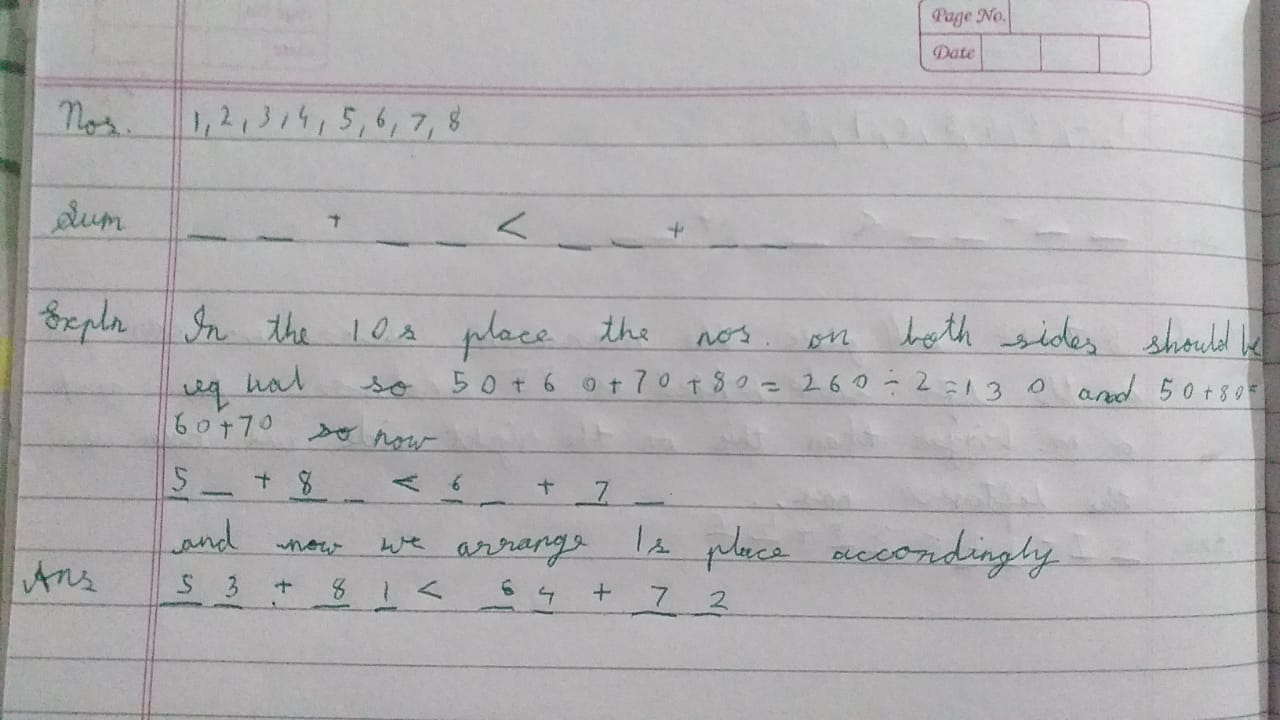 Page No.
Date
Nos. 1, 2, 3, 4, 5, 6, 7, 8
Sum _ _ + _ _ < _ _ + _ _
Expln In the 10s place the nos. on both sides should be
equal so 50 + 60 + 70 + 80 = 260 ÷ 2 = 130 and 50 + 80 =
60 + 70 so now
5 _ + 8 _ < 6 _ + 7 _
and now we arrange 1s place accordingly
Ans 5 3 + 8 1 < 6 4 + 7 2